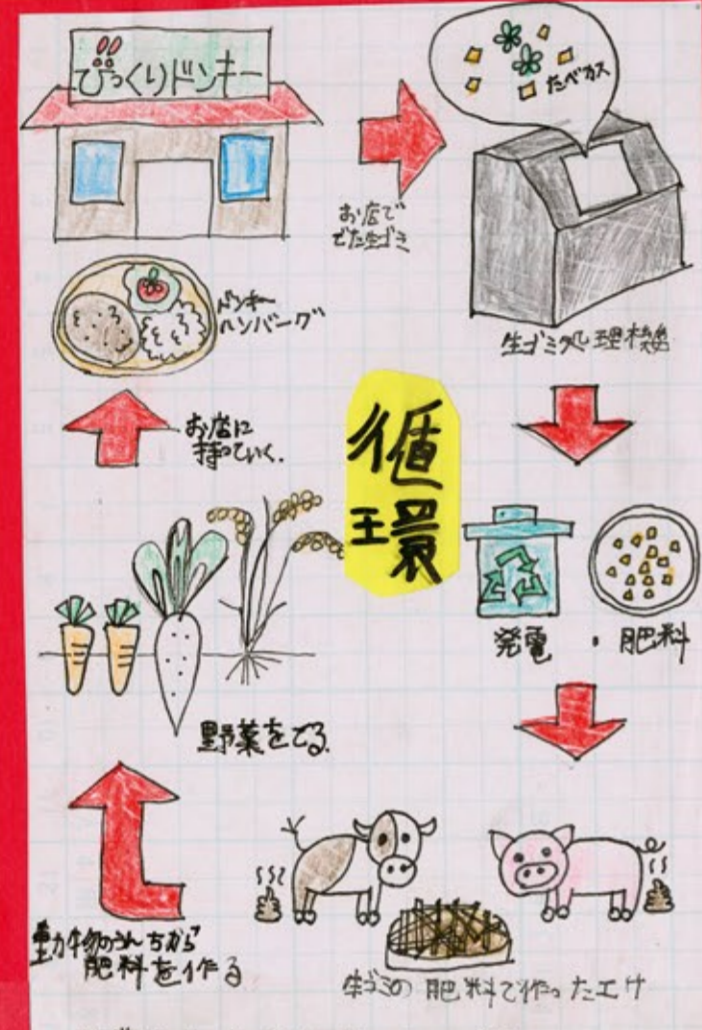 びっくりドンキー
たべカス
お店で
でた生ゴミ
生ゴミ処理機
ドンキー
ハンバーグ
お店に
持っていく.
循
環
発電・肥料
野菜をそる.
動物のうんちから
肥料を作る
生ゴミの肥料で作ったエサ